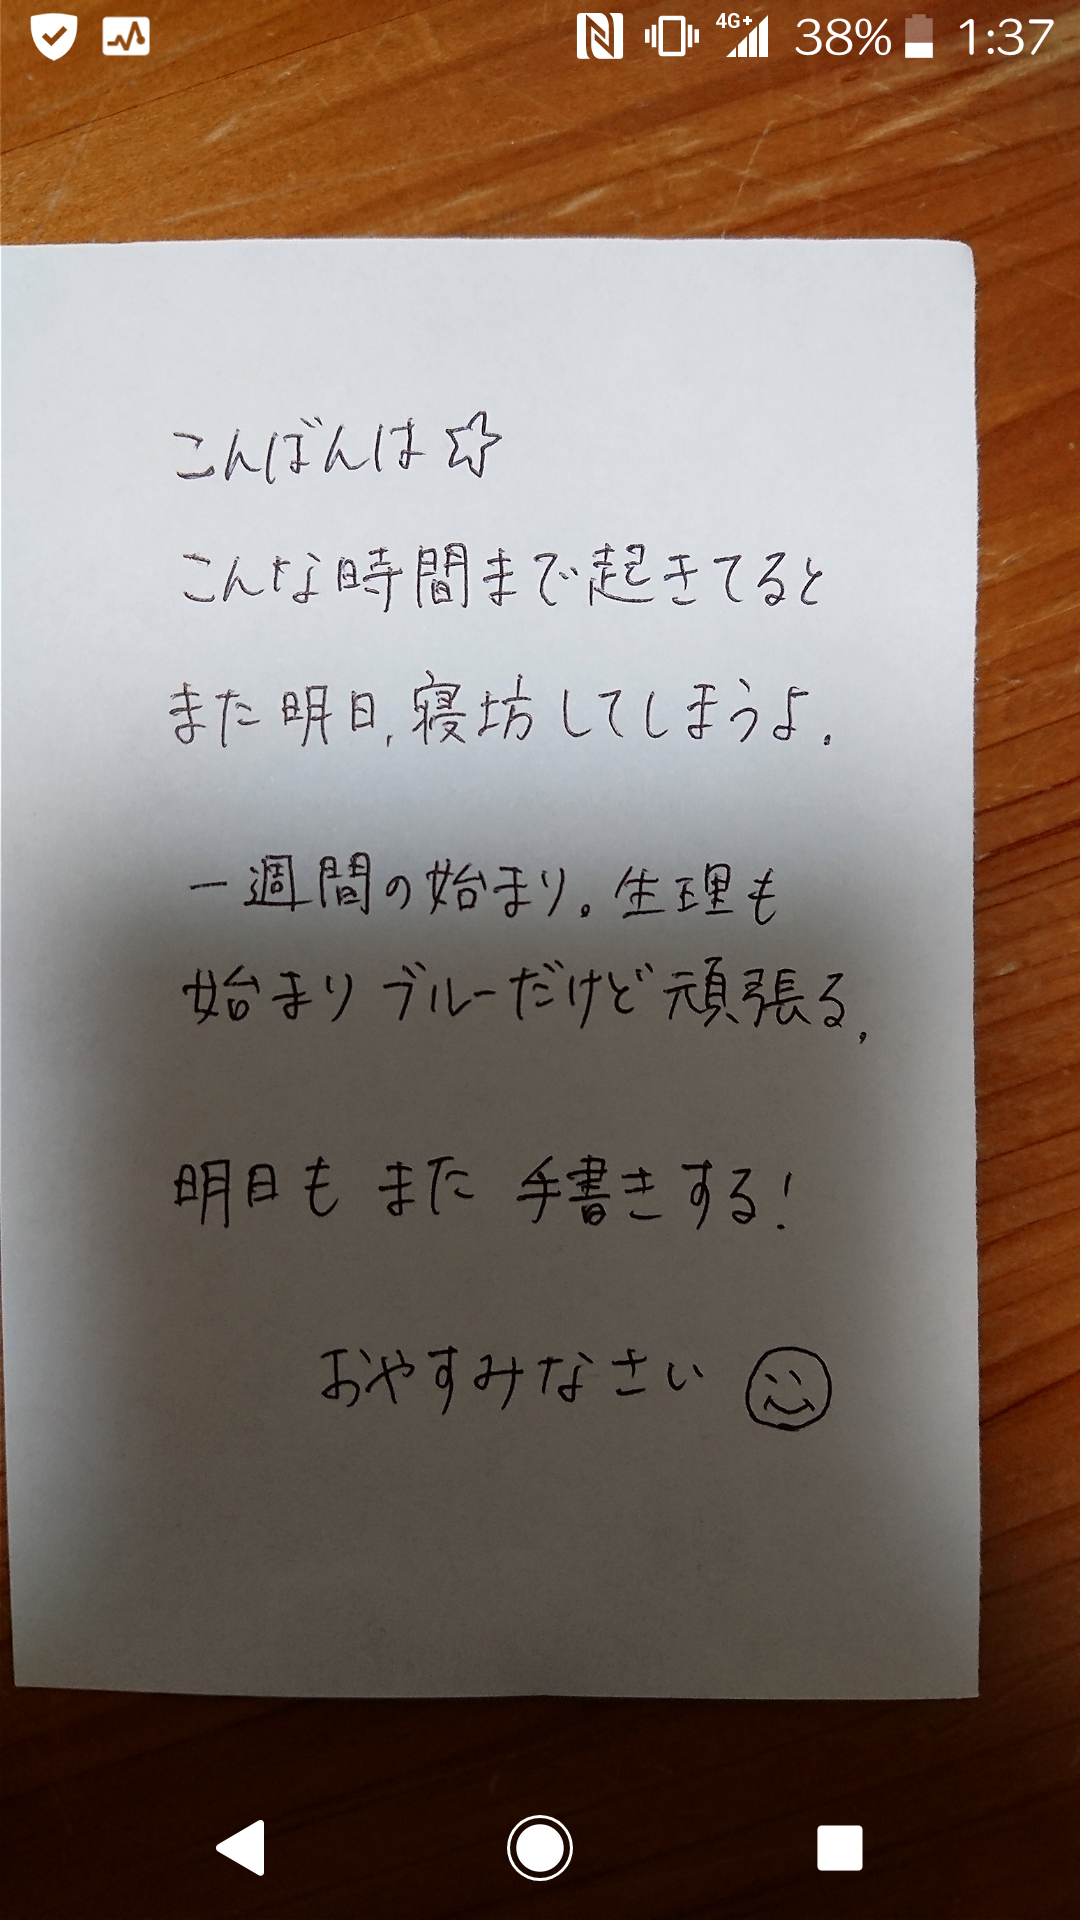 4G+ 38% 1:37
こんばんは☆
こんな時間まで起きてると
また明日,寝坊してしまうよ.
一週間の始まり。生理も
始まりブルーだけど頑張る,
明日も また 手書きする!
おやすみなさい